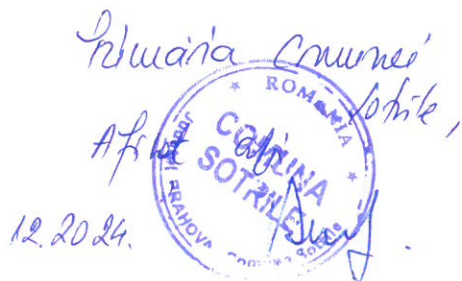 Primăria Comunei
Șotrile,
Afișat azi
12.2024.
ROMÂNIA
COMUNA
ȘOTRILE
Județul PRAHOVA Comuna Șotrile